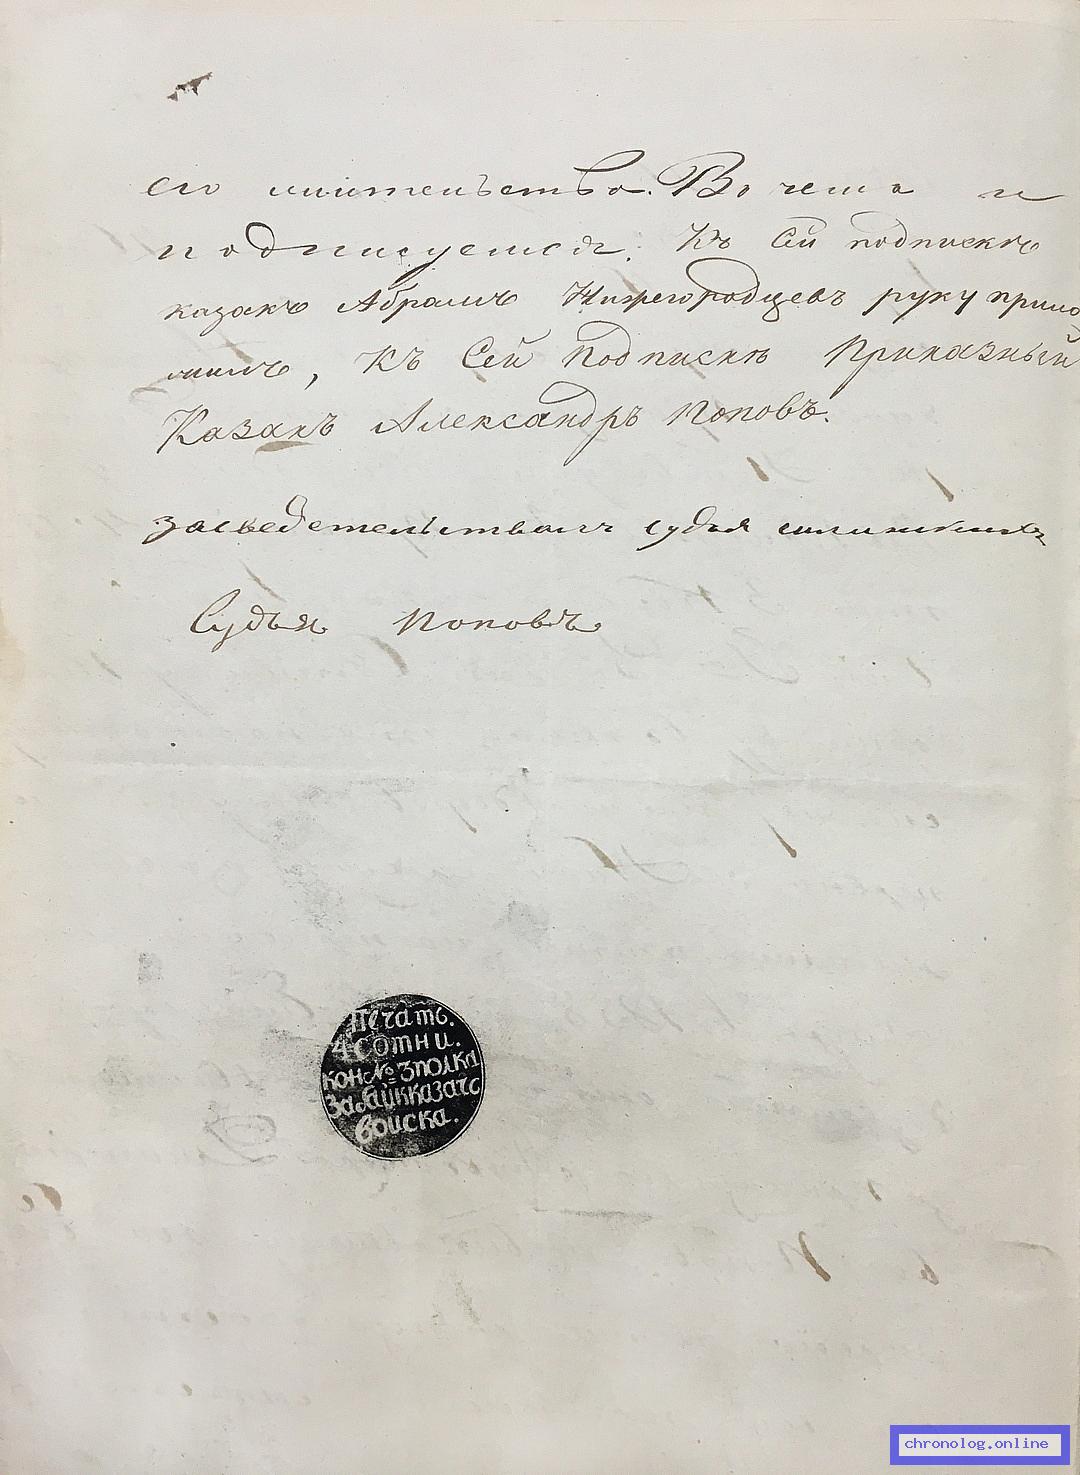 его жительства. Во чемъ и
подписуемся. Къ сей подпискѣ
казакъ Абрамъ Нижегородцевъ руку прило
жилъ, Къ Сей подпискѣ Приказный
Казакъ Александръ Поповъ.
засведетельствомъ судья
Судья Поповъ
Печать.
4 сотни.
кон № 3 полка
Забайк казачь
войска.
chronolog.online